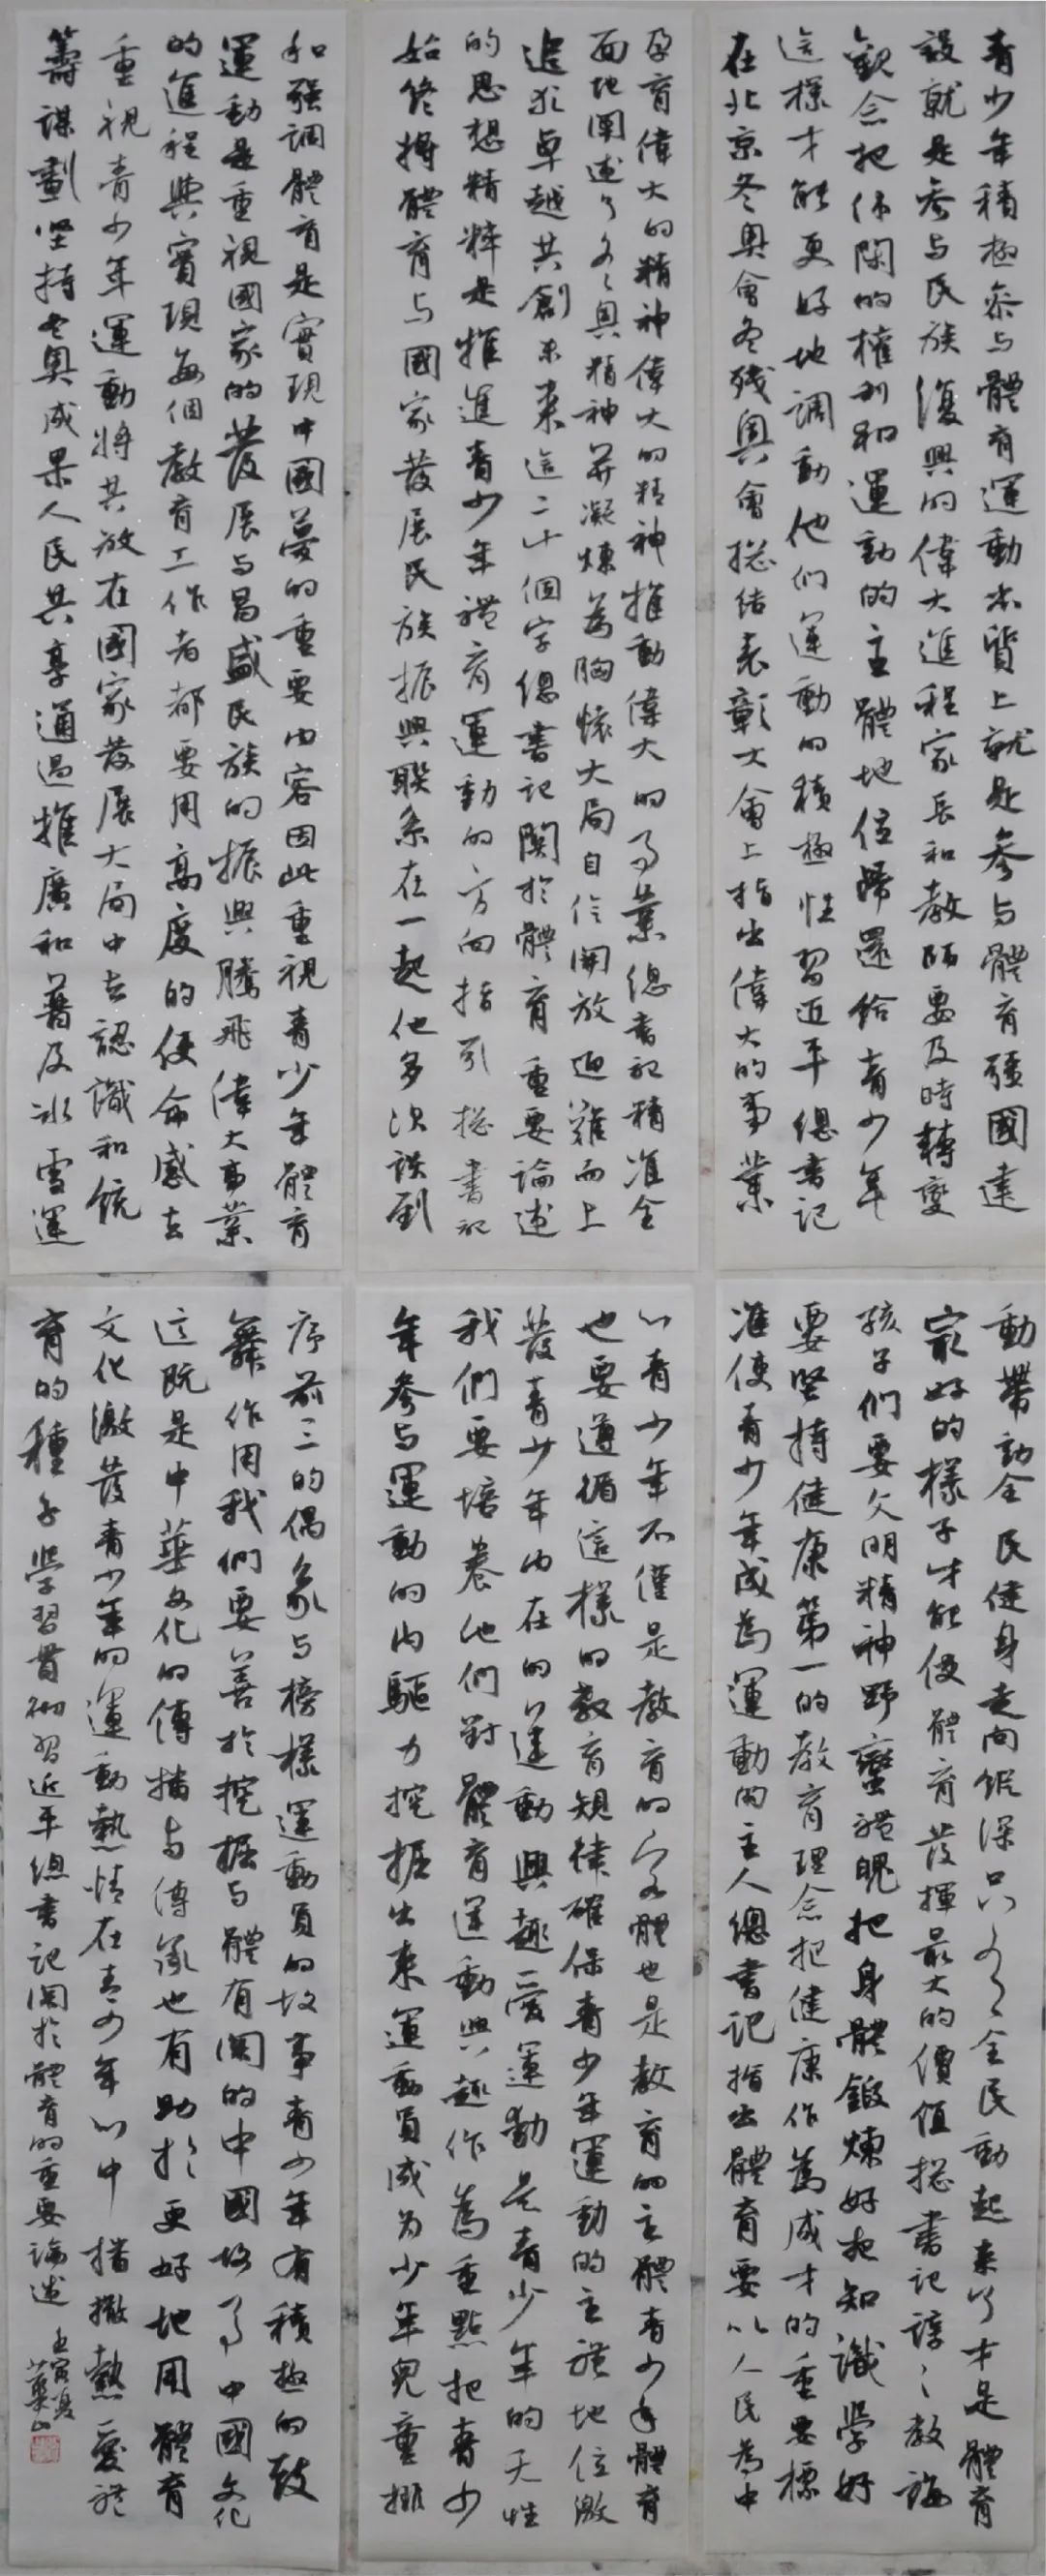 青少年積極參与體育運動本質上就是參与體育強國建
設就是參与民族復興的偉大進程家長和教師要及時轉變
觀念把休閑的權利和運動的主體地位歸還給青少年
這樣才能更好地調動他们運動的積極性習近平總書記
在北京冬奧會冬殘奧會總结表彰大會上指出偉大的事業
孕育偉大的精神偉大的精神推動偉大的事業總書記精准全
面地闡述了冬奧精神并凝煉為胸懷大局自信開放迎難而上
追求卓越共創未来這二十個字總書記関於體育重要論述
的思想精粹是推進青少年體育運動的方向指引總書記
始终將體育与國家發展民族振興聯系在一起他多次談到
和強調體育是實現中國夢的重要内容因此重視青少年體育
運動是重視國家的發展与昌盛民族的振興騰飛偉大事業
的進程與實現每個教育工作者都要用高度的使命感去
重視青少年運動將其放在國家發展大局中去認識和統
籌謀劃坚持冬奧成果人民共享通過推廣和普及冰雪運
動帶動全民健身走向縱深只有全民動起来了才是體育
最好的樣子才能使體育發揮最大的價值總書記諄々教誨
孩子们要文明精神野蠻體魄把身體鍛煉好把知識學好
要坚持健康第一的教育理念把健康作為成才的重要標
准使青少年成為運動的主人總書記指出體育要以人民為中
心青少年不僅是教育的客體也是教育的主體青少年體育
也要遵循這樣的教育規律確保青少年運動的主體地位激
發青少年内在的運動興趣愛運動是青少年的天性
我們要培養他們對體育運動興趣作為重點把青少
年參与運動的内驅力挖掘出来運動員成为少年兒童排
序前三的偶象与榜樣運動員的故事青少年有積極的鼓
舞作用我們要善於挖掘与體有関的中國故事中國文化
這既是中華文化的傳播与傳承也有助於更好地用體育
文化激發青少年的運動熱情在青少年心中播撒熱愛體
育的種子學習貫徹習近平總書記関於體育的重要論述
壬寅夏